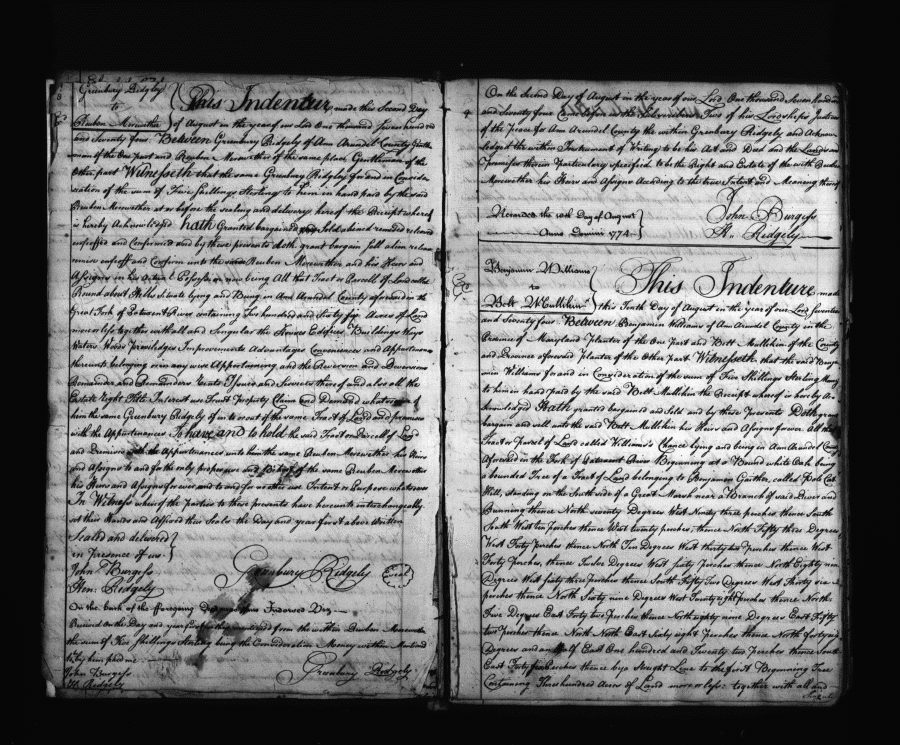 Greenbury Ridgely
to
Reuben Meriwether
This Indenture made this Second Day
of August in the year of our Lord One thousand Seven hundred
and Seventy four Between Greenbury Ridgely of Ann Arundel County Gentle
man of the One part and Reuben Meriwether of the same place Gentleman of the
Other part Witnesseth that the same Greenbury Ridgely for and in Conside
ration of the sum of Five Shillings Sterling to him in hand paid by the said
Reuben Meriwether at or before the sealing and delivery hereof the Receipt whereof
is hereby Acknowledged hath Granted bargained and Sold aliened remised released
enfeoffed and Confirmed and by these presents doth grant bargain sell alien release
remise enfeoff and Confirm unto the same Reuben Meriwether and his Heirs and
Assigns in his Actual Possession now being All that Tract or Parcell of Land called
Round about Hills Situate lying and Being in Ann Arundel County aforesaid in the
Great Fork of Patuxent River containing Two hundred and Sixty six Acres of Land
more or less together with all and Singular the Houses Edifices Buildings Ways
Waters Woods Priviledges Improvements Advantages Conveniences and Appurtenan
thereunto belonging or in any wise Appertaining and the Reversion and Reversions
Remainder and Remainders Rents Issues and Services thereof and also all the
Estate Right Title Interest use Trust Property Claim and Demand whatsoever of
him the same Greenbury Ridgely of in to or out of the same Tract of Land and premises
with the Appurtenances To have and to hold the said Tract or Parcell of Land
and Demised with the Appurtenances unto him the same Reuben Meriwether his Heirs
and Assigns to and for the only proper use and Behoof of the same Reuben Meriwether
his Heirs and Assigns forever and to and for no other use Intent or Purpose whatsoever
In Witness whereof the parties to these presents have hereunto interchangeably
set their Hands and Affixed their Seals the Day and year first above Written
Sealed and delivered
in presence of us
John Burgess
Hen: Ridgely
Greenbury Ridgely
Seal
On the back of the foregoing Deed was thus Indorsed Viz
Received on the Day and year first within mentioned from the within Reuben Meriwether
the sum of Five Shillings Sterling being the Consideration Money within Mentioned
to be by him paid me
John Burgess
H. Ridgely
Greenbury Ridgely
On the Second Day of August in the year of our Lord One thousand Seven hundred
and Seventy four Came before us the Subscribers Two of his Lordships Justices
of the peace for Ann Arundel County the within Greenbury Ridgely and Acknow
ledged the within Instrument of Writing to be his Act and Deed and the Lands and
Premisses therein Particularly specified to be the Right and Estate of the within Reuben
Meriwether his Heirs and Assigns According to the true Intent and Meaning thereof
John Burgess
H. Ridgely
Recorded the 10th Day of August
Anno Domini 1774
Benjamin Williams
to
Belt Mullikin
This Indenture made
this Tenth Day of August in the year of our Lord Seventeen
and Seventy four Between Benjamin Williams of Ann Arundel County in the
Province of Maryland Planter of the One Part and Belt Mullikin of the County
and Province aforesaid Planter of the Other Part Witnesseth that the said Benja
min Williams for and in Consideration of the sum of Five Shillings Sterling Money
to him in hand paid by the said Belt Mullikin the Receipt whereof is hereby Ac
knowledged Hath granted bargained and Sold and by these Presents Doth grant
bargain and sell unto the said Belt Mullikin his Heirs and Assigns forever All that
Tract or Parcel of Land called Williams's Chance lying and being in Ann Arundel County
Aforesaid in the Fork of Patuxent River Beginning at a Bound white Oak being
a bounded Tree of a Tract of Land belonging to Benjamin Gaither, called Pole Cat
Hill, standing on the South side of a Great Marsh near a Branch of said River and
Running thence North seventy Degrees West Ninety three perches thence South
South West ten perches thence West twenty perches, thence North Fifty three Degrees
West Forty Perches thence North Ten Degrees West thirty two perches thence West
Forty Perches, thence Degrees West forty perches thence North Eighty nine
Degrees West forty three perches thence South Fifty Two Degrees West Thirty six
perches thence North Sixty nine Degrees West Twenty eight perches thence North
Five Degrees East Forty two perches thence North eighty nine Degrees East Fifty
two Perches thence North North East Sixty eight Perches thence North forty six
Degrees and an half East One hundred and Twenty two Perches thence South
East Forty perches thence by a Straight Line to the first Beginning Tree
Containing Three hundred Acres of Land more or less: together with all and
Singular